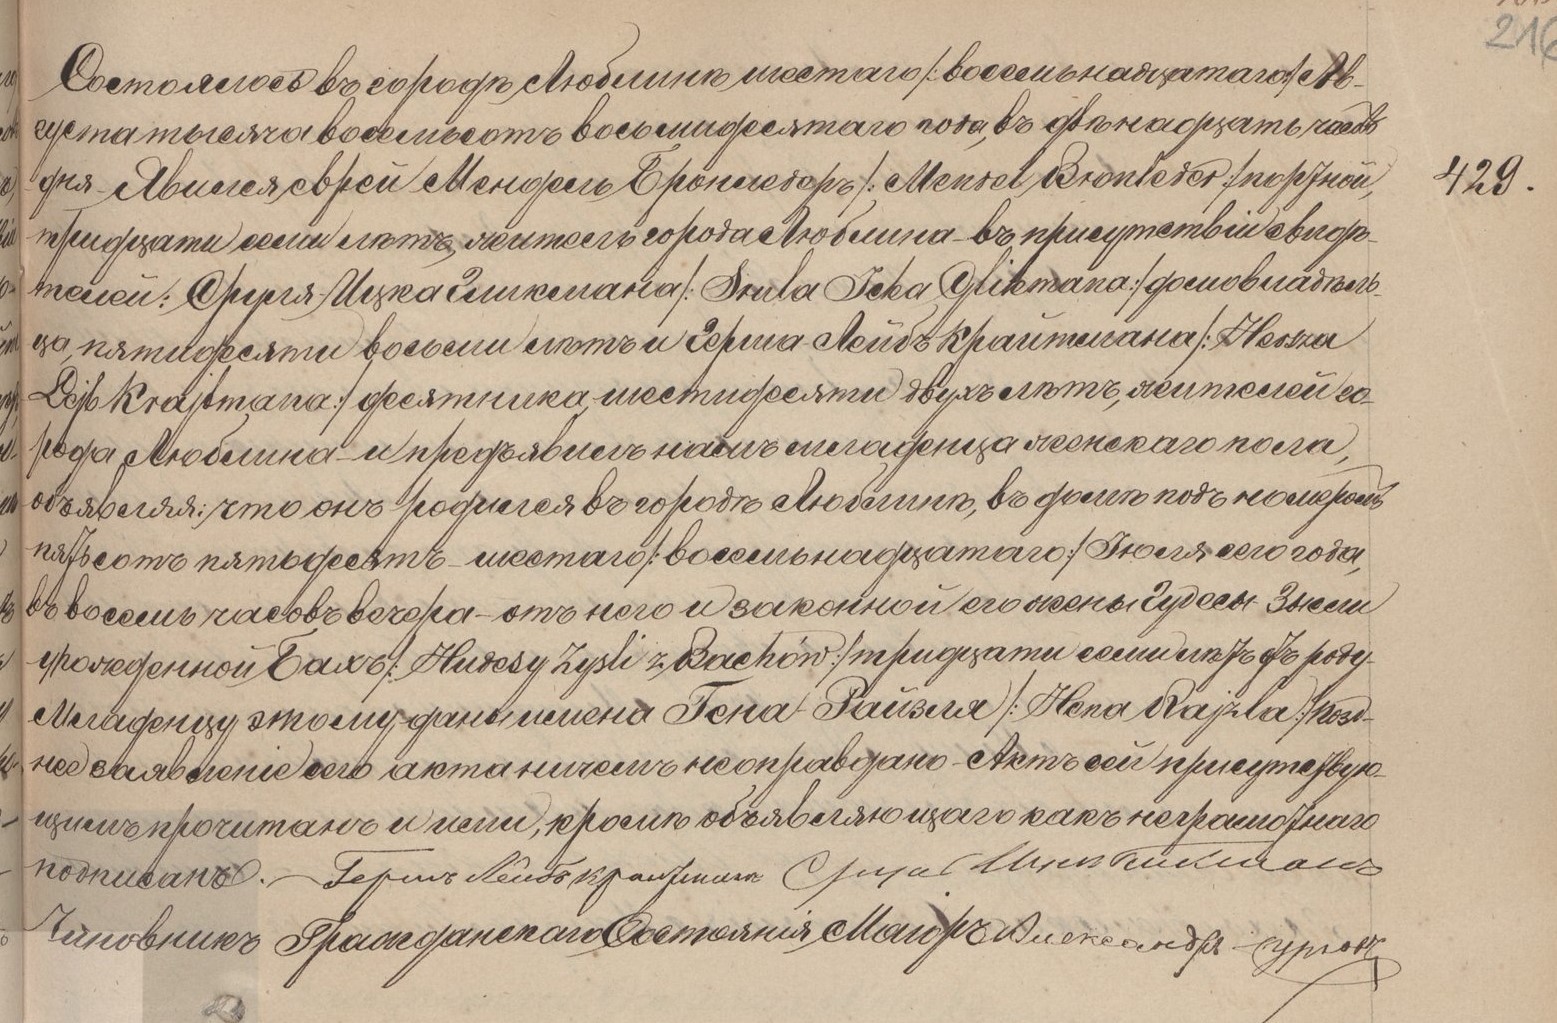 216
Состоялось въ городѣ Люблинѣ шестаго /: восемьнадцатаго :/ Ав-
густа тысяча восемьсотъ восьмидесятаго года, въ двѣнадцать часовъ
дня. Явился еврей Мендель Бронледеръ /: Mendel Bronleder :/ портной,
429.
тридцати семи лѣтъ, житель города Люблина – въ присутствіи свидѣ-
телей: Сруля-Ицка Гликмана /: Srula Icka Glikmana :/ домовладѣль-
ца, пятидесяти восьми лѣтъ и Герша Лейбъ Крайтмана /: Herszka
Lejb Krajtmana :/ десятника, шестидесяти двухъ лѣтъ, жителей го-
рода Люблина – и предъявилъ намъ младенца женскаго пола,
объявляя: что онъ родился въ городѣ Люблинѣ, въ домѣ подъ номеромъ
пятьсотъ пятьдесятъ – шестаго /: восемьнадцатаго :/ Іюля сего года,
въ восемь часовъ вечера – отъ него и законной его жены Гудесы Зысли
урожденной Бахъ /: Hudesy Zysli z Bachów :/ тридцати семи лѣтъ отъ роду.
Младенцу этому даны имена Гена Райзля /: Hena Rajzla :/ Позд-
нее заявленіе сего акта ничемъ неоправдано – Актъ сей присутствую-
щимъ прочитанъ и ими, кромѣ объявляющаго какъ неграмотнаго
подписанъ. – Гершъ Лейбъ Крайтманъ Сруль Ицкъ Гликманъ
Чиновникъ Гражданскаго Состоянія, Маіоръ Александръ